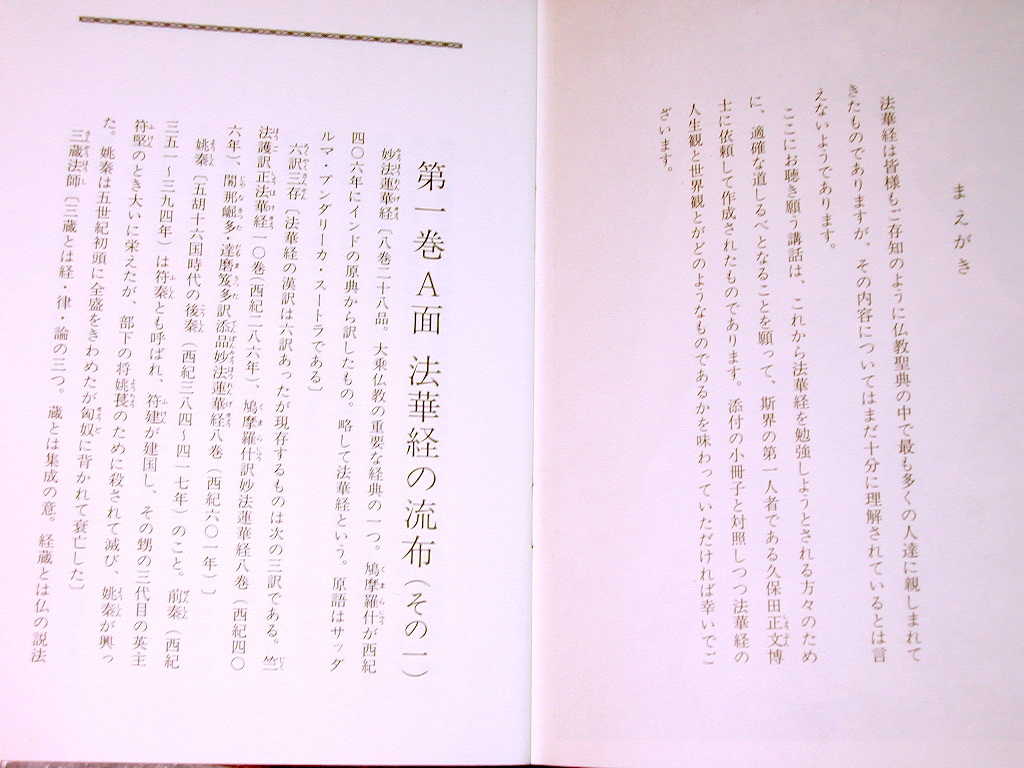 まえがき
法華経は皆様もご存知のように仏教聖典の中で最も多くの人達に親しまれて
きたものでありますが、その内容についてはまだ十分に理解されているとは言
えないようであります。
ここにお聴き願う講話は、これから法華経を勉強しようとされる方々のため
に、適確な道しるべとなることを願って、斯界の第一人者である久保田正文博
士に依頼して作成されたものであります。添付の小冊子と対照しつつ法華経の
人生観と世界観とがどのようなものであるかを味わっていただければ幸いでご
ざいます。
第一巻A面 法華経の流布(その一)
妙法蓮華経〔八巻二十八品。大乗仏教の重要な経典の一つ。鳩摩羅什が西紀
四〇六年にインドの原典から訳したもの。略して法華経という。原語はサッダ
ルマ・プンダリーカ・スートラである〕
六訳三存〔法華経の漢訳は六訳あったが現存するものは次の三訳である。竺
法護訳正法華経一〇巻(西紀二八六年)、鳩摩羅什訳妙法蓮華経八巻(西紀四〇
六年)、闍那崛多・達磨笈多訳添品妙法蓮華経八巻(西紀六〇一年)〕
姚秦〔五胡十六国時代の後秦(西紀三八四〜四一七年)のこと。前秦(西紀
三五一〜三九四年)は符秦とも呼ばれ、符建が建国し、その甥の三代目の英主
符堅のとき大いに栄えたが、部下の将姚萇のために殺されて滅び、姚秦が興っ
た。姚秦は五世紀初頭に全盛をきわめたが匈奴に背かれて衰亡した〕
三蔵法師〔三蔵とは経・律・論の三つ。蔵とは集成の意。経蔵とは仏の説法